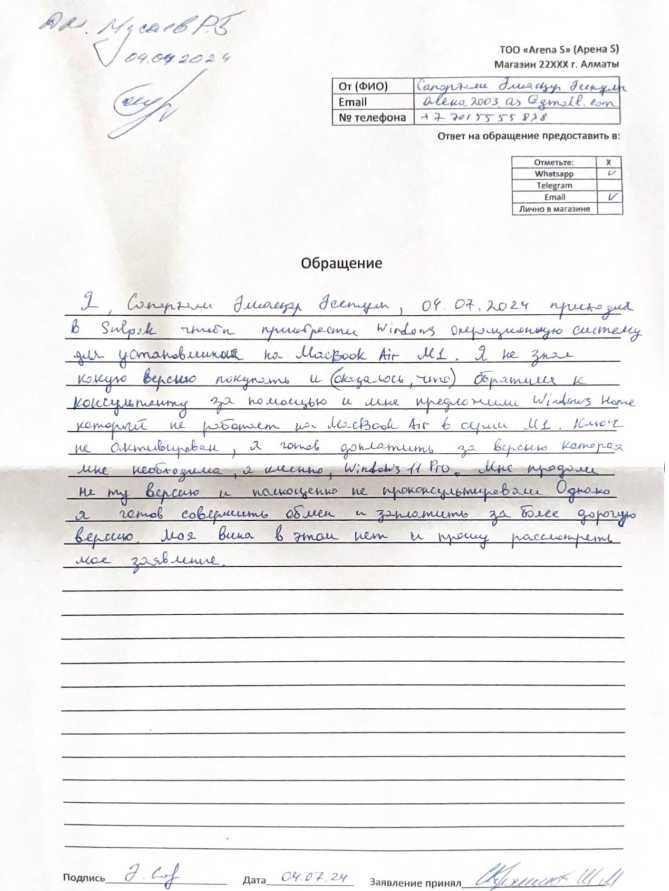 Мусаев Р.Б
04.07.2024
ТОО «Arena S» (Арена S)
Магазин 22XXX г. Алматы
От (ФИО)
Email @gmail.com
№ телефона
Ответ на обращение предоставить в:
Отметьте: X
Whatsapp ✓
Telegram
Email ✓
Лично в магазине
Обращение
Я, , 04.07.2024 приходил
в Sulpak чтобы приобрести Windows операционную систему
для установки на MacBook Air M1. Я не знал
какую версию покупать и (оказалось, что) обратился к
консультанту за помощью и мне предложили Windows Home
который не работает на MacBook Air в серии M1. Ключ
не активирован, я готов доплатить за версию которая
мне необходима, а именно, Windows 11 Pro. Мне продали
не ту версию и полноценно не проконсультировали Однако
я готов совершить обмен и заплатить за более дорогую
версию. Моя вина в этом нет и прошу рассмотреть
мое заявление.
Подпись Дата 04.07.24 Заявление принял